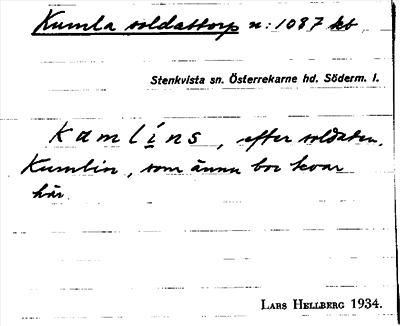 Kumla soldattorp n:1087 kb
Stenkvista sn. Österrekarne hd. Söderm. l.
Kamlins, efter soldaten
Kumlin, som ännu bor kvar
här.
LARS HELLBERG 1934.